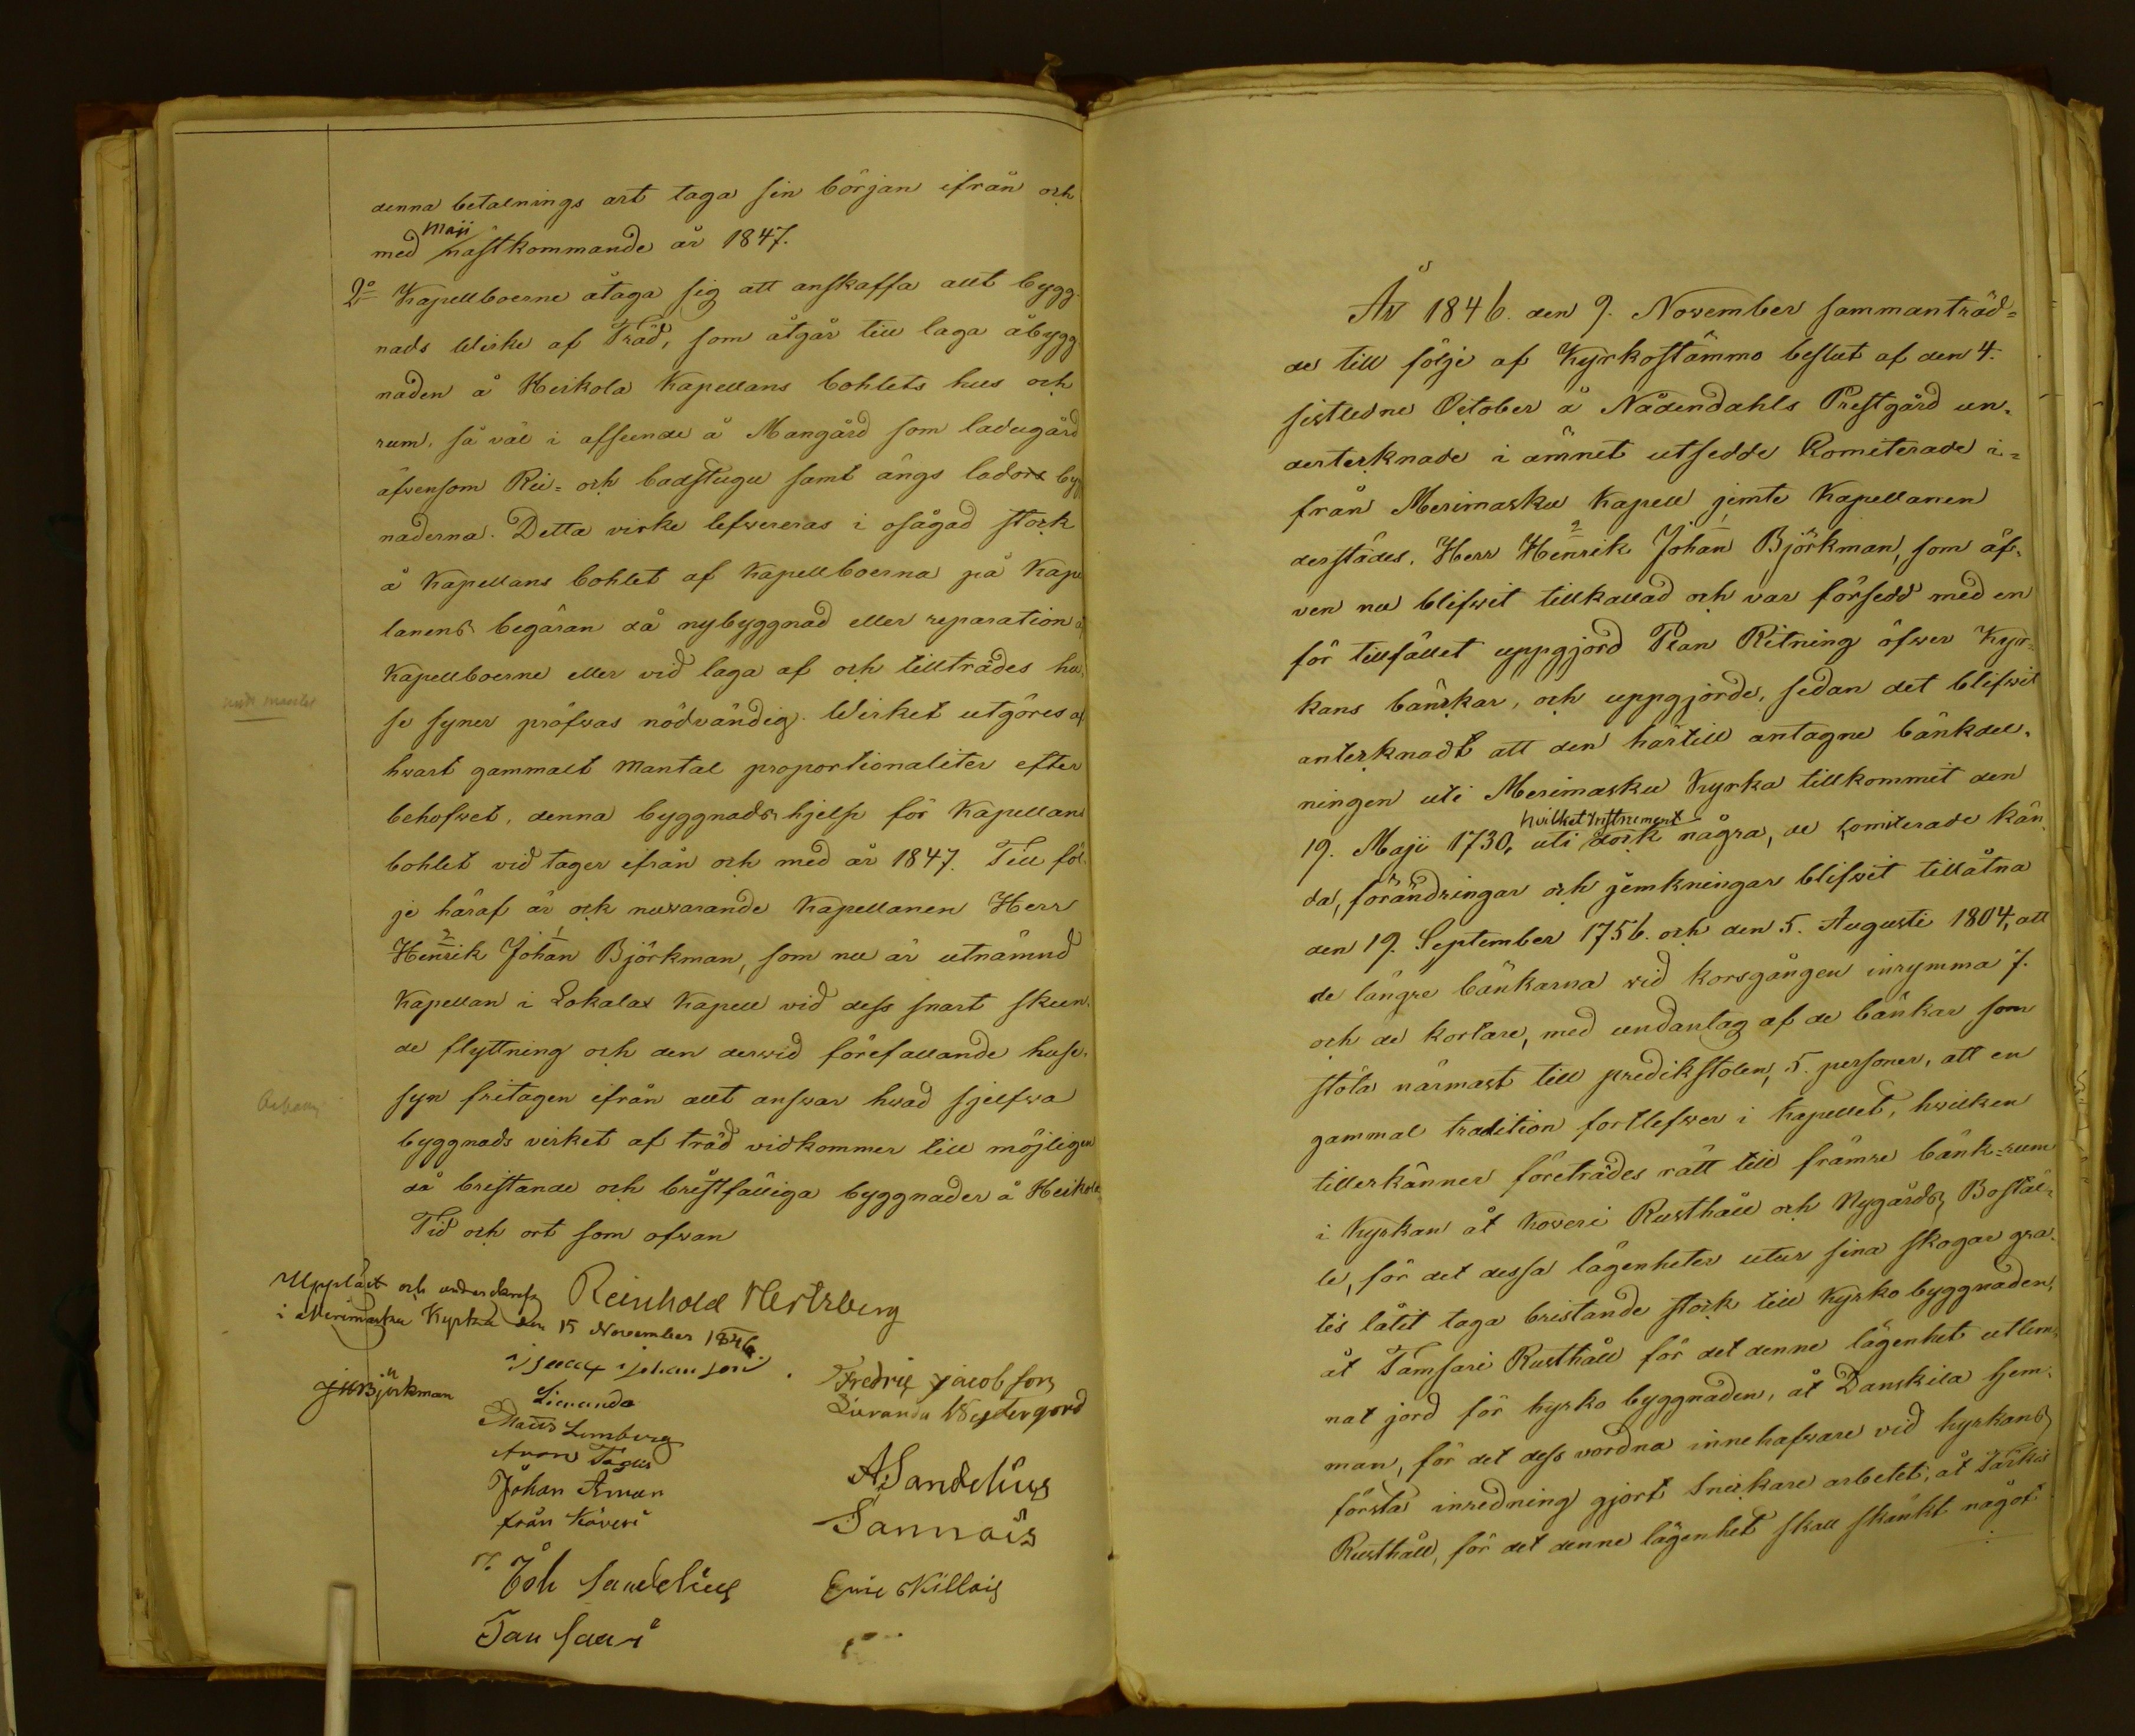 denna betalnings art taga sin början ifrån och
Maji
med nästkommande år 1847.
2o Kapellboerne åtaga sig att anskaffa allt bygg-
nads Wirke af Träd, som åtgår till laga åbygg-
naden å Heikola Kapellans bohlets hus och
rum, så väl i afseende å Mangård som ladugård
äfvensom Rii- och badstugu samt ängs lador byg
naderna. Detta virke lefwereras i osågad stock
å Kapellans bohlet af Kapellboerna på Kapel
lanens begäran då nybyggnad eller reparation af
Kapellboerne eller vid laga af och tillträdes hu-
se syner pröfwas nödvändig. Wirket utgöres af
hwart gammalt Mantal proportionaliter efter
behofwet, denna byggnads hjelp för Kapellans
bohlet vid tager ifrån och med år 1847. Till föl-
je häraf är ock nuvarande Kapellanen Herr
2 1
Henrik Johan Björkman, som nu är utnämnd
Kapellan i Lokalax Kapell vid dess snart skeen-
de flyttning och den derwid förefallande huse-
syn fritagen ifrån allt answar hwad sjelfwa
byggnads virket af träd vidkommer till möjligen
då bristande och bristfälliga byggnader å Heikola
Tid och ort som ofwan
Uppläst och underskrefz Reinhold Hertzberg
i Merimasku Kyrka den 15 November 1846.
johanson Fredric jacobson
JHBjörkman Livuanda Westergord
Matts Lemberg
Johan Åman ASandelius
från Köveri Sannais
Joh Sandelius Eric Killais
Tamsaari
År 1846. den 9. November sammanträd-
de till följe af Kyrkostämmo beslut af den 4.
sistledne October å Nådendahls Prestgård un-
dertecknade i ämnet utsedde Komiterade i-
från Merimasku Kapell jemte Kapellanen
2 1
derstädes, Herr Henrik Johan Björkman, som äf-
ven nu blifwit tillkallad och var försedd med en
för tillfället uppgjord Plan Ritning öfwer Kyr-
kans bänckar, och uppgjorde, sedan det blifwit
antecknadt att den härtill antagne bänkdel-
ningen uti Merimasku Kyrka tillkommit den
hvilket Instrument
19. Maji 1730, uti dock några, de komiterade kän-
da, förändringar och jemkningar blifwit tillåtna
den 19. September 1756. och den 5. Augusti 1804, att
de längre bänkarna wid korsgången inrymma 7.
och de kortare, med undantag af de bänkar som
stöta närmast till predikstolen, 5. personer, att en
gammal tradition fortlefwer i Kapellet, hwilken
tillerkänner företrädes rätt till främre bänk-rum
i Kyrkan åt Köveri Rusthåll och Nygårds Bostäl-
le, för det dessa lägenheter utur sina skogar gra-
tis låtit taga bristande stock till Kyrko byggnaden,
åt Tamsari Rusthåll för det denne lägenhet utlem-
nat jord för kyrko byggnaden, åt Danskila hem-
man, för det dess vordna innehafware vid kyrkans
första inredning gjort Snickare arbetet, åt Järkis
Rusthåll, för det denne lägenhet skall skänkt något